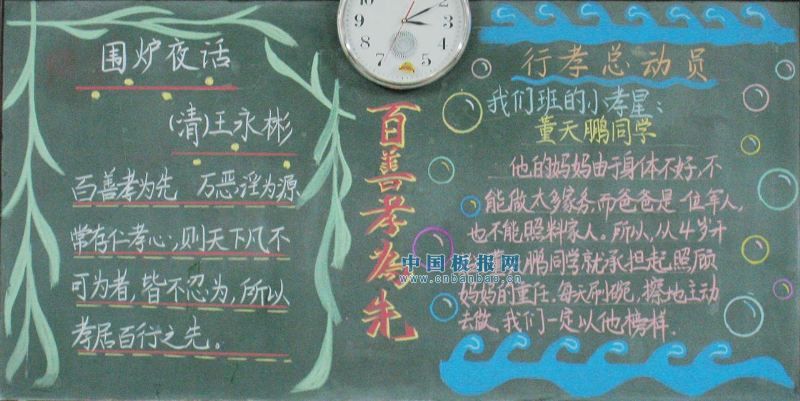 围炉夜话
(清)王永彬
百善孝为先 万恶淫为源
常存仁孝心,则天下凡不
可为者,皆不忍为,所以
孝居百行之先。
百善孝为先
行孝总动员
我们班的小孝星:
董天鹏同学
他的妈妈由于身体不好,不
能做太多家务,而爸爸是一位军人,
也不能照料家人。所以,从4岁开
鹏同学就承担起照顾
妈妈的重任。每天刷碗,擦地主动
去做。我们一定以他榜样.
中国板报网
www.cnbanbao.cn
12
1
2
3
4
5
6
7
8
9
10